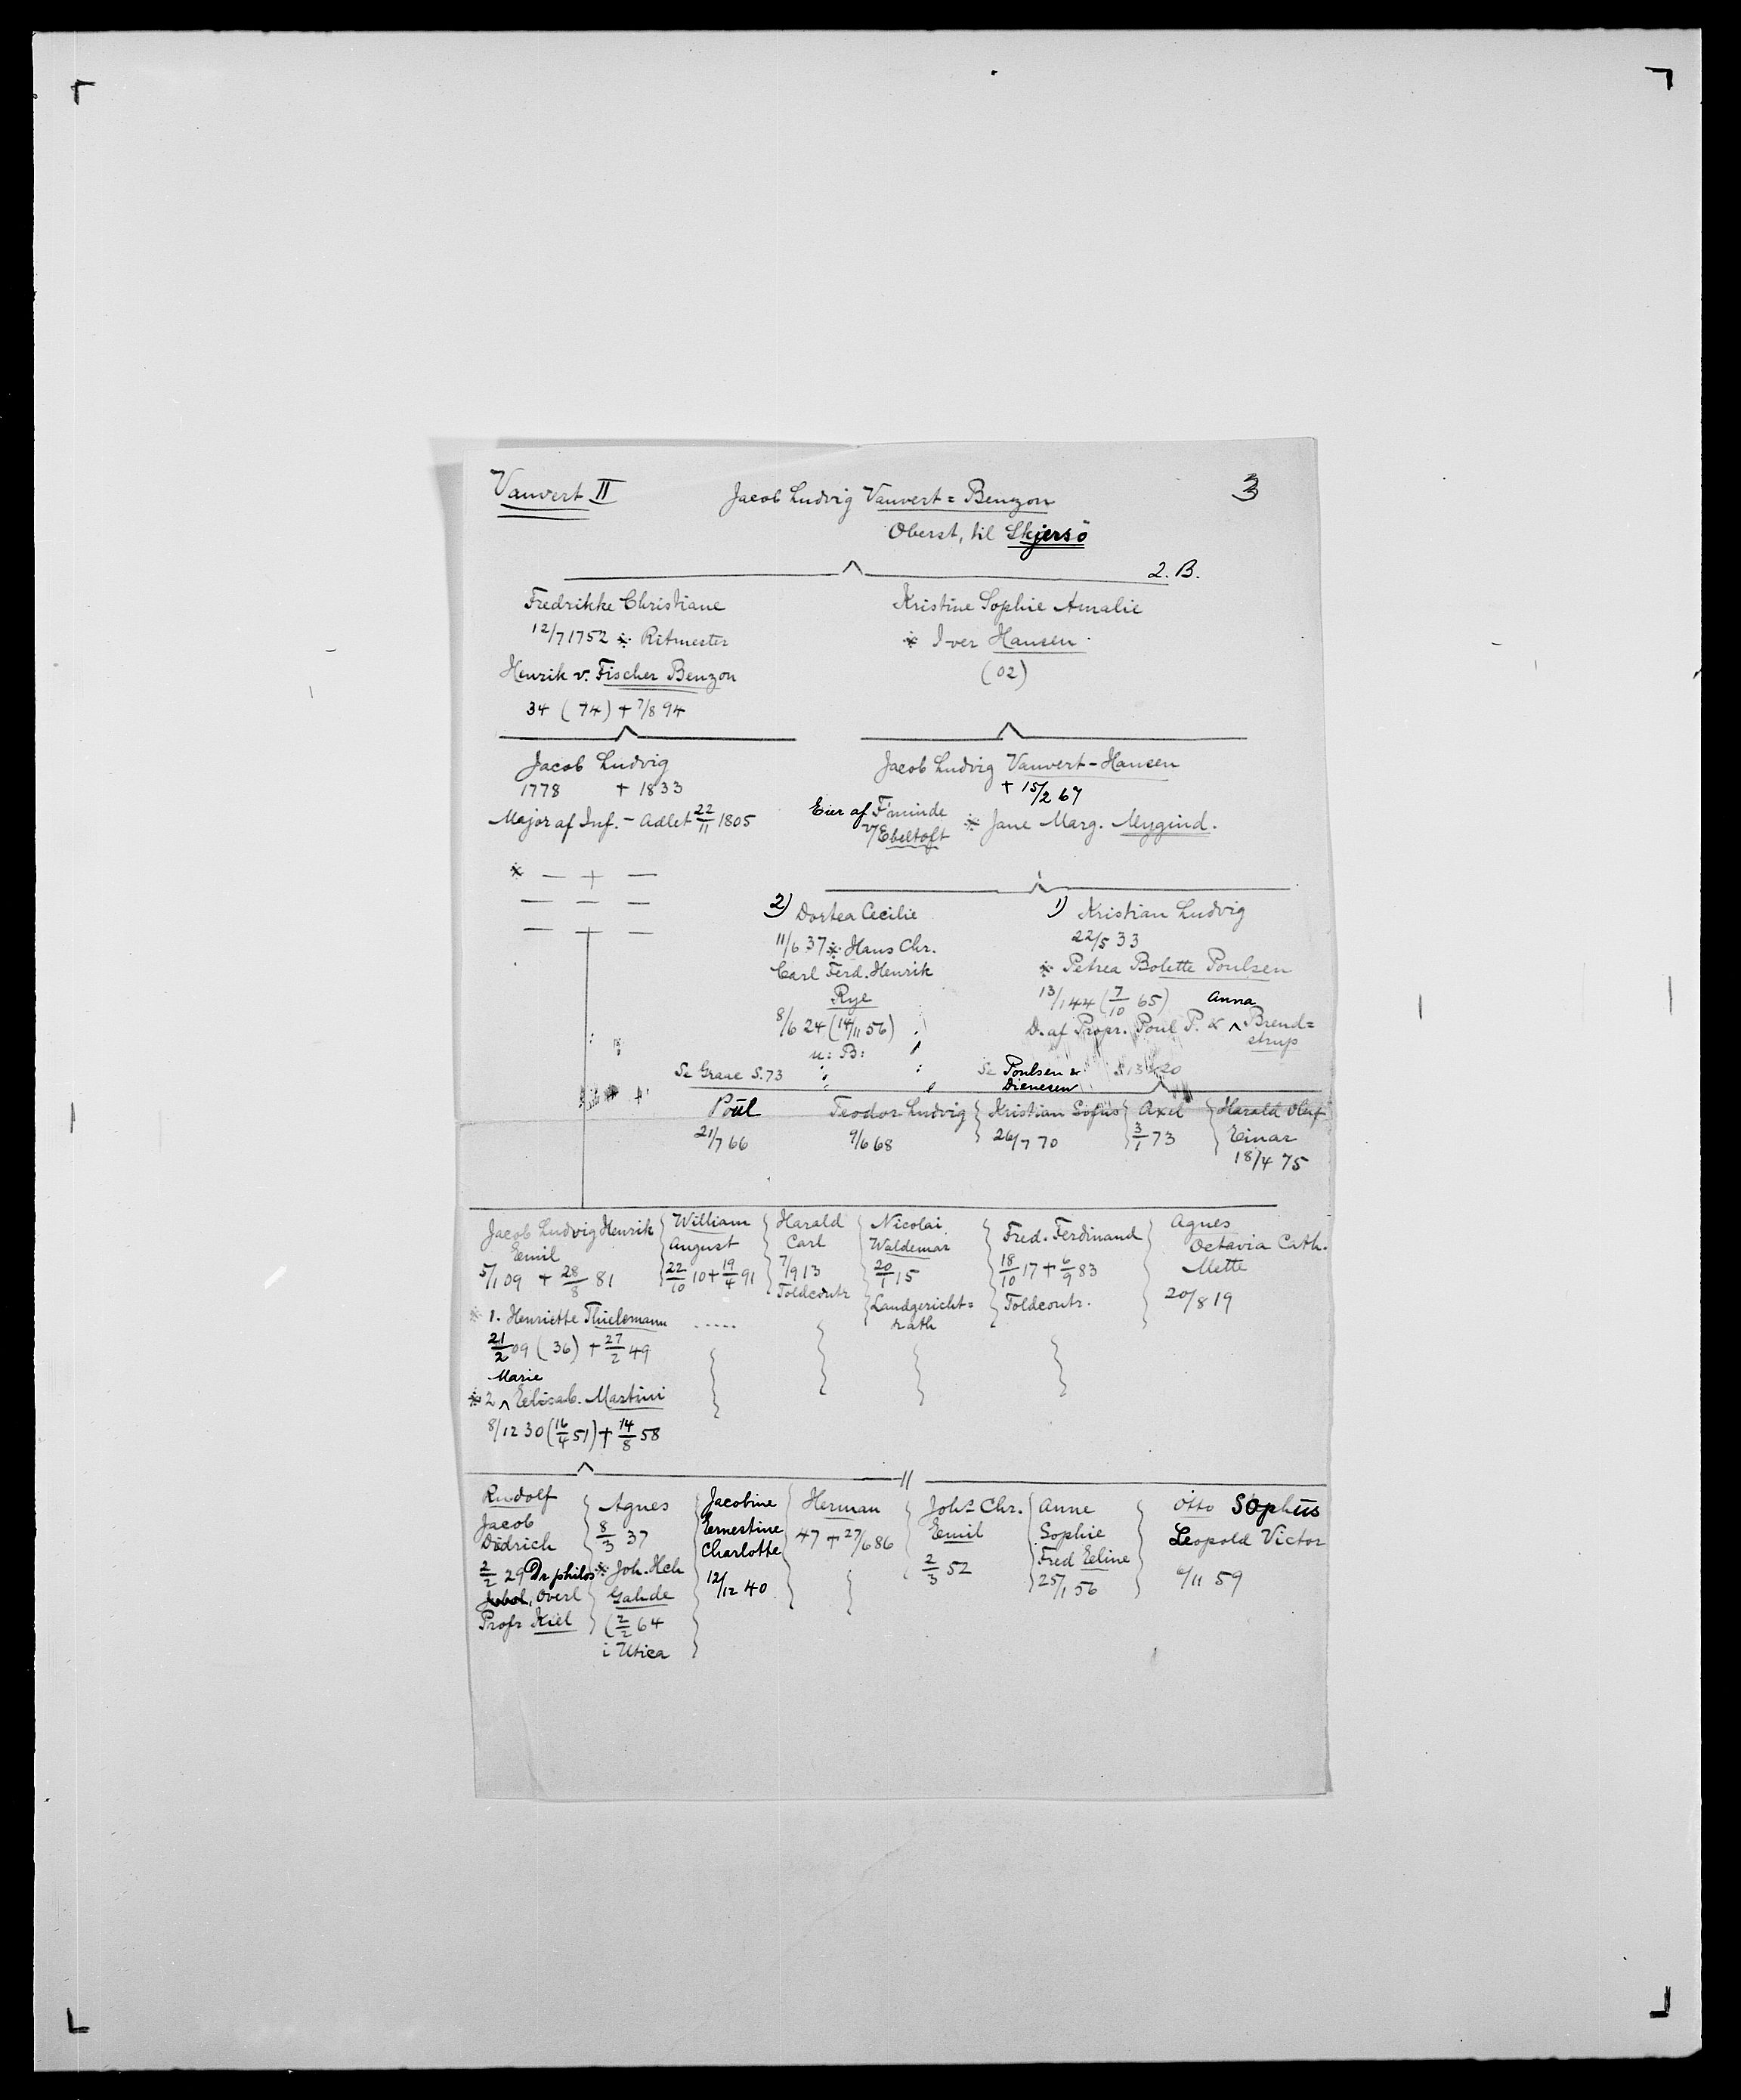 Vanvert II
Jacob Ludvig Vanvert = Benzon
3
Oberst, til Skjersö
2. B.
Fredrikke Christiane
12/7 1752 ※ Ritmester
Henrik v. Fischer Benzon
34 (74) + 7/8 94
Kristine Sophie Amalie
※ Iver Hansen
(02)
Jacob Ludvig
1778 + 1833
Major af Inf. - Adlet 22/11 1805
※ — + —
— — —
— + —
Jacob Ludvig Vanvert-Hansen
+ 15/2 67
Eier af F'minde
v/Ebeltoft
※ Jane Marg. Mygind.
2) Dortea Cecilie
11/6 37 ※ Hans Chr.
Carl Ferd. Henrik
Rye
8/6 24 (14/11 56)
u: B:
Se Graae S. 73
1) Kristian Ludvig
22/5 33
※ Petrea Bolette Poulsen
13/1 44 (7/10 65)
Anna
D. af Propr. Poul P. & ^ Brend=
strup
Se Poulsen &
Dienesen
Poül
21/7 66
Teodor Ludvig
9/6 68
Kristian Sofus
26/7 70
Axel
3/1 73
Harald Oluf
Einar
18/4 75
Jacob Ludvig Henrik
Emil
5/1 09 + 28/8 81
※ 1. Henriette Thielemann
21/2 09 (36) + 27/2 49
Marie
※ 2 ^ Elisab. Martini
8/12 30 (16/4 51) + 14/8 58
William
August
22/10 10 + 19/4 91
.....
Harald
Carl
7/9 13
Toldcontr
Nicolai
Waldemar
20/1 15
Landgericht=
rath
Fred. Ferdinand
18/10 17 + 6/9 83
Toldcontr.
Agnes
Octavia Cath.
Mette
20/8 19
Rudolf
Jacob
Didrich
2/2 29 Dr philos
Overl
Profr Kiel
Agnes
8/3 37
※ Joh. Hch
Gahde
(2/2 64
i Utica
Jacobine
Ernestine
Charlotte
12/12 40
Herman
47 + 27/6 86
Johs Chr.
Emil
2/3 52
Anne
Sophie
Fred Eline
25/1 56
Otto Sophüs
Leopold Victor
6/11 59